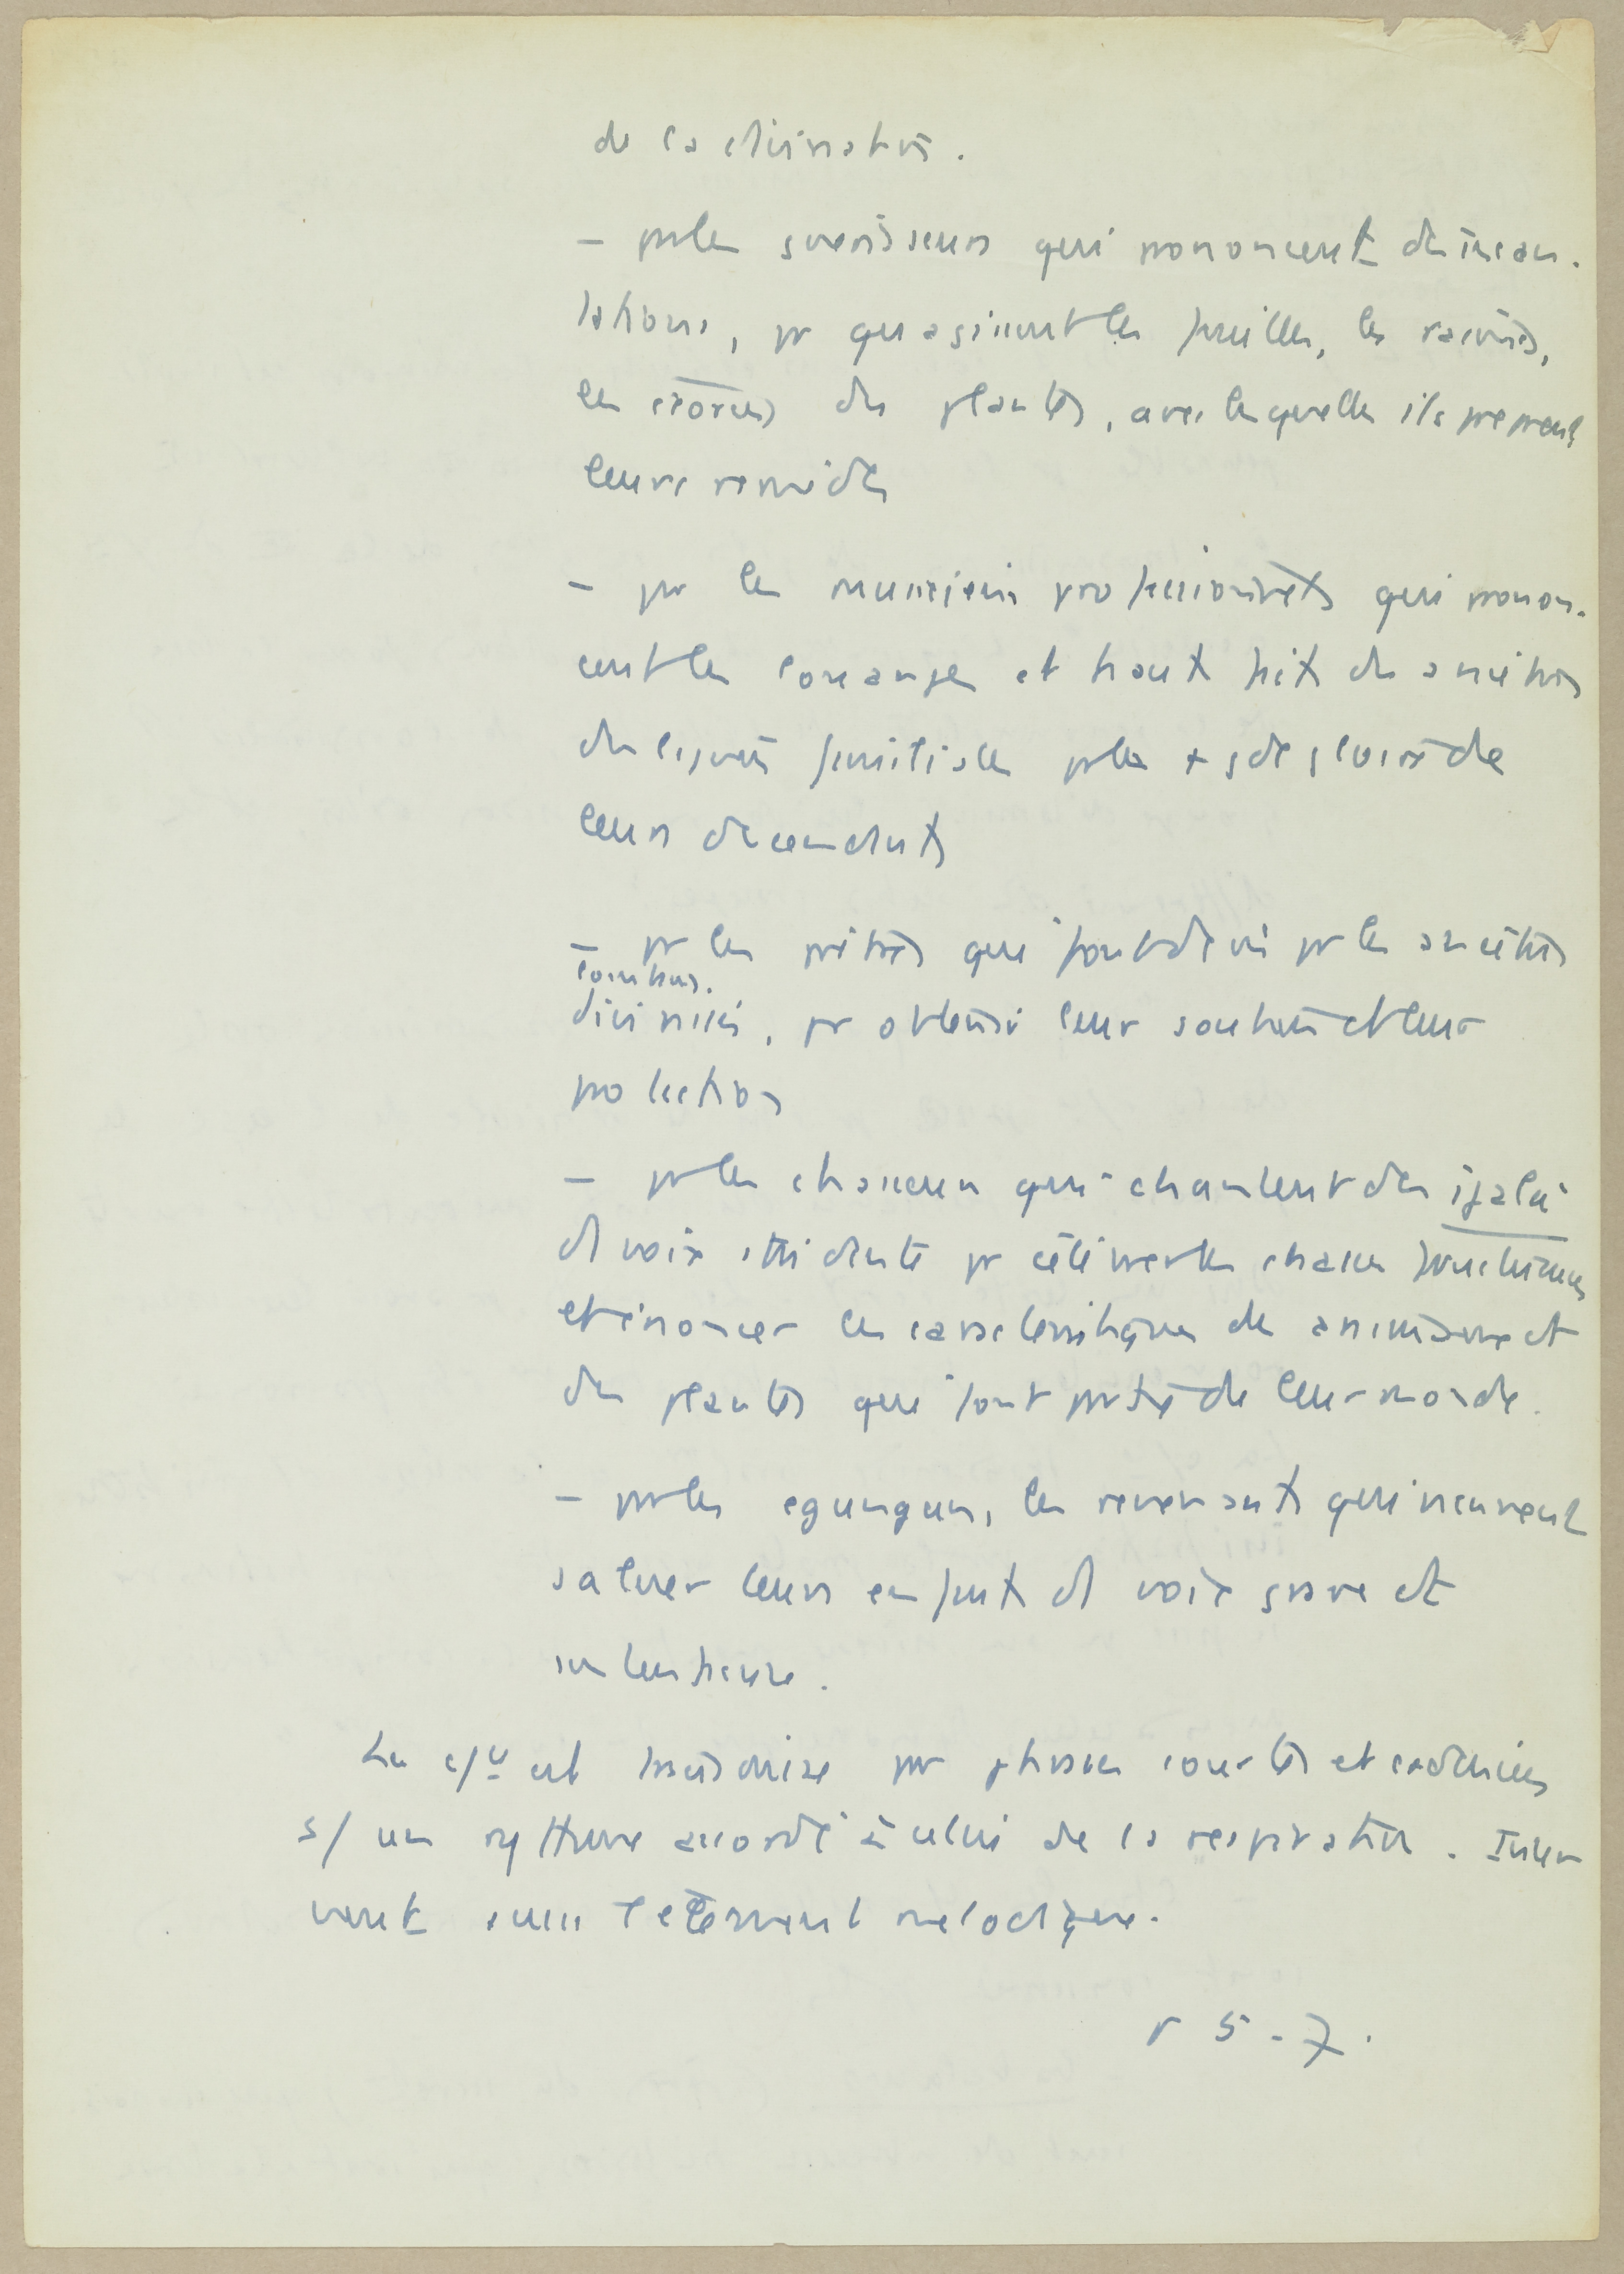 de la divination.
- par les guérisseurs qui prononcent des incan-
tations, pr qu agissent les feuilles, les racines,
les écorces des plantes, avec lesquelles ils preprent
leurs remèdes
- par les musiciens professionnels qui pronon-
cent les louanges et hauts faits des ancêtres
des lignées familiales pr la + gde gloire de
leurs descendants
- par les prêtres qui font de mê pr les ancêtres
divinisés, pr obtenir leur soutien et leur
protection
- par les chasseurs qui chantent des ijala
d voix stridente pr célébrer les chasses fructueuses
et énoncer les caractéristiques des animaux et
des plantes qui font partie de leur monde.
- par les egungun, les revenants qui viennent
saluer leurs enfants d voix grave et
La est transmise par phrases courtes et cadencées
s/ un rythme accordé à celui de la respiration. Inter
vient aussi l'élément mélodique.
v 5-7.